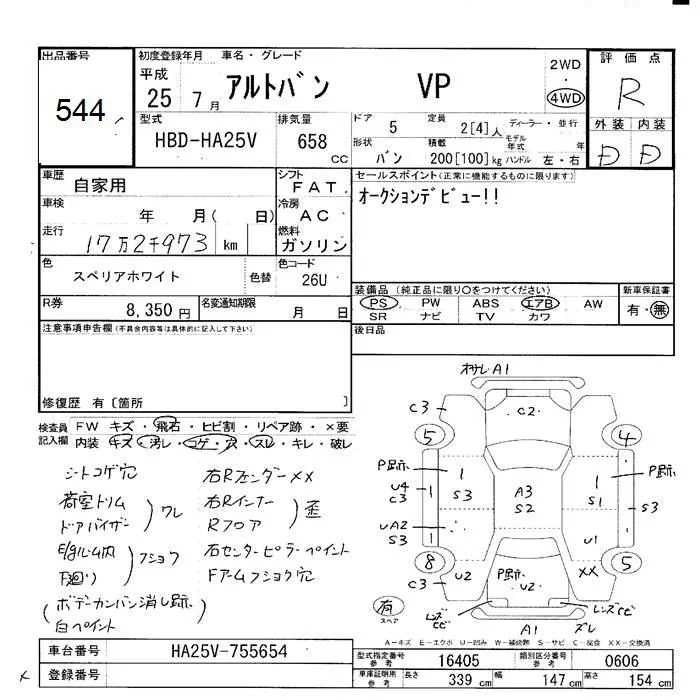 出品番号
544
初度登録年月 車名・グレード
平成
25 7月 アルトバン VP
2WD
4WD
評価点
R
型式
HBD-HA25V
排気量
658
CC
ドア 5 定員 2[4]人 ディーラー・並行
形状 バン 積載 200[100]kg モデル年式 年
ハンドル 左・右
外装 内装
D D
車歴 自家用
シフト FAT
車検 年 月( 日)
冷房 AC
走行 17万2千973 km
燃料 ガソリン
色 スペリアホワイト 色替
色コード 26U
R券 8,350円 名変通知期限 月 日
セールスポイント(正常に機能するものに限ります)
オークションデビュー!!
装備品(純正品に限り○をつけてください)
PS PW ABS エアB AW
SR ナビ TV カワ
新車保証書
有・無
後日品
注意事項申告欄(不具合内容等は具体的に記入して下さい)
修復歴 有〔箇所 〕
検査員記入欄
FW キズ・飛石・ヒビ割・リペア跡・×要
内装 キズ・汚レ・コゲ・穴・スレ・キレ・破レ
シートコゲ穴
荷室トリム
ドアバイザー
ワレ
E/gルーム内
下廻り
フショク
(ボデーカンバン消し跡)
白ペイント
右Rフェンダー××
右Rインナー
Rフロア
歪
右センターピラーペイント
Fアームフショク穴
オサレ A1
C3
C2
5
4
P跡
1
S3
U4
C3
1
A3
S2
1
S1
P跡
S3
UA2
S3
1
U1
8
5
C3
U2
P跡
U2
××
有
スペア
レンズヒビ
レンズヒビ
A1
ズレ
A-キズ E-エクボ U-凹み W-補修跡 S-サビ C-腐食 ××-交換済
車台番号 HA25V-755654
登録番号
型式指定番号 参考 16405 類別区分番号 参考 0606
車庫証明用 参考 長さ 339 cm 幅 147 cm 高さ 154 cm